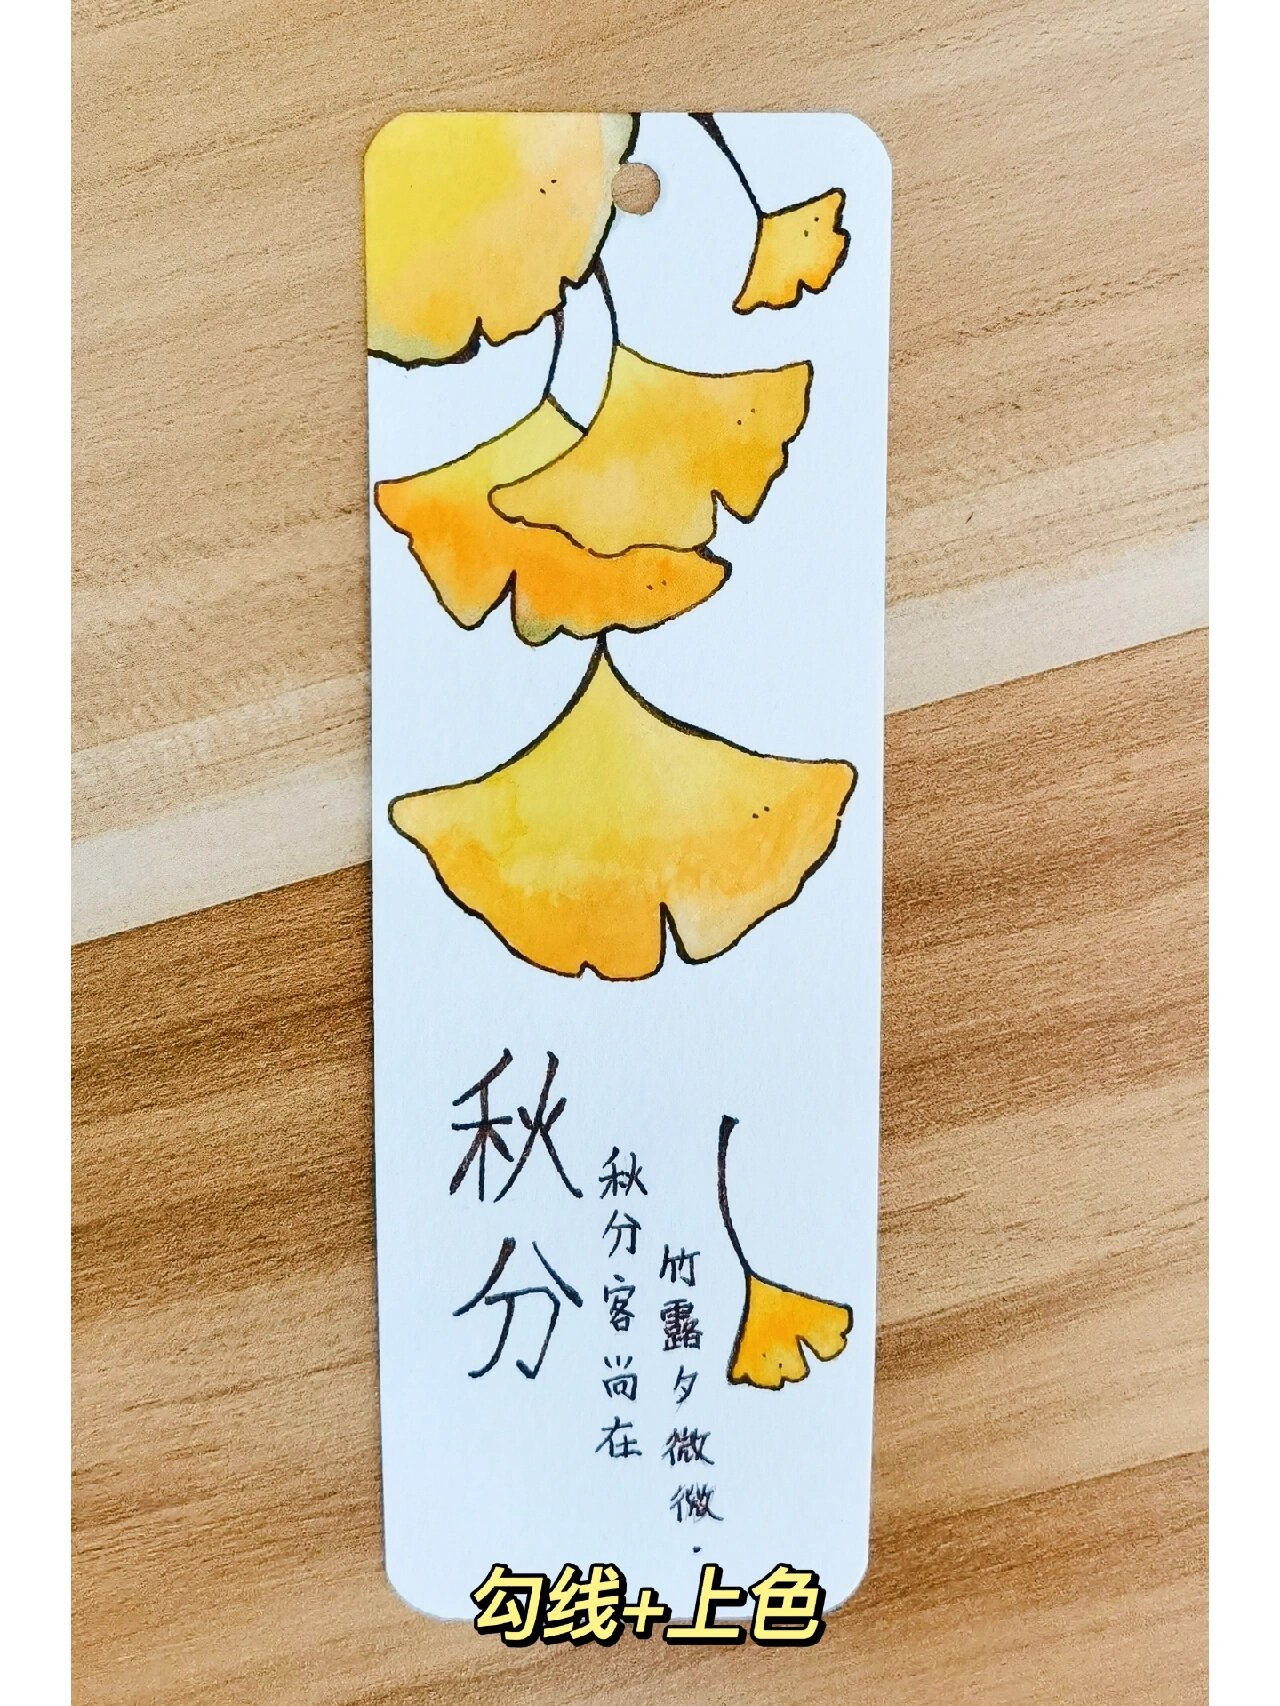 秋分
秋分客尚在
竹露夕微微.
勾线+上色